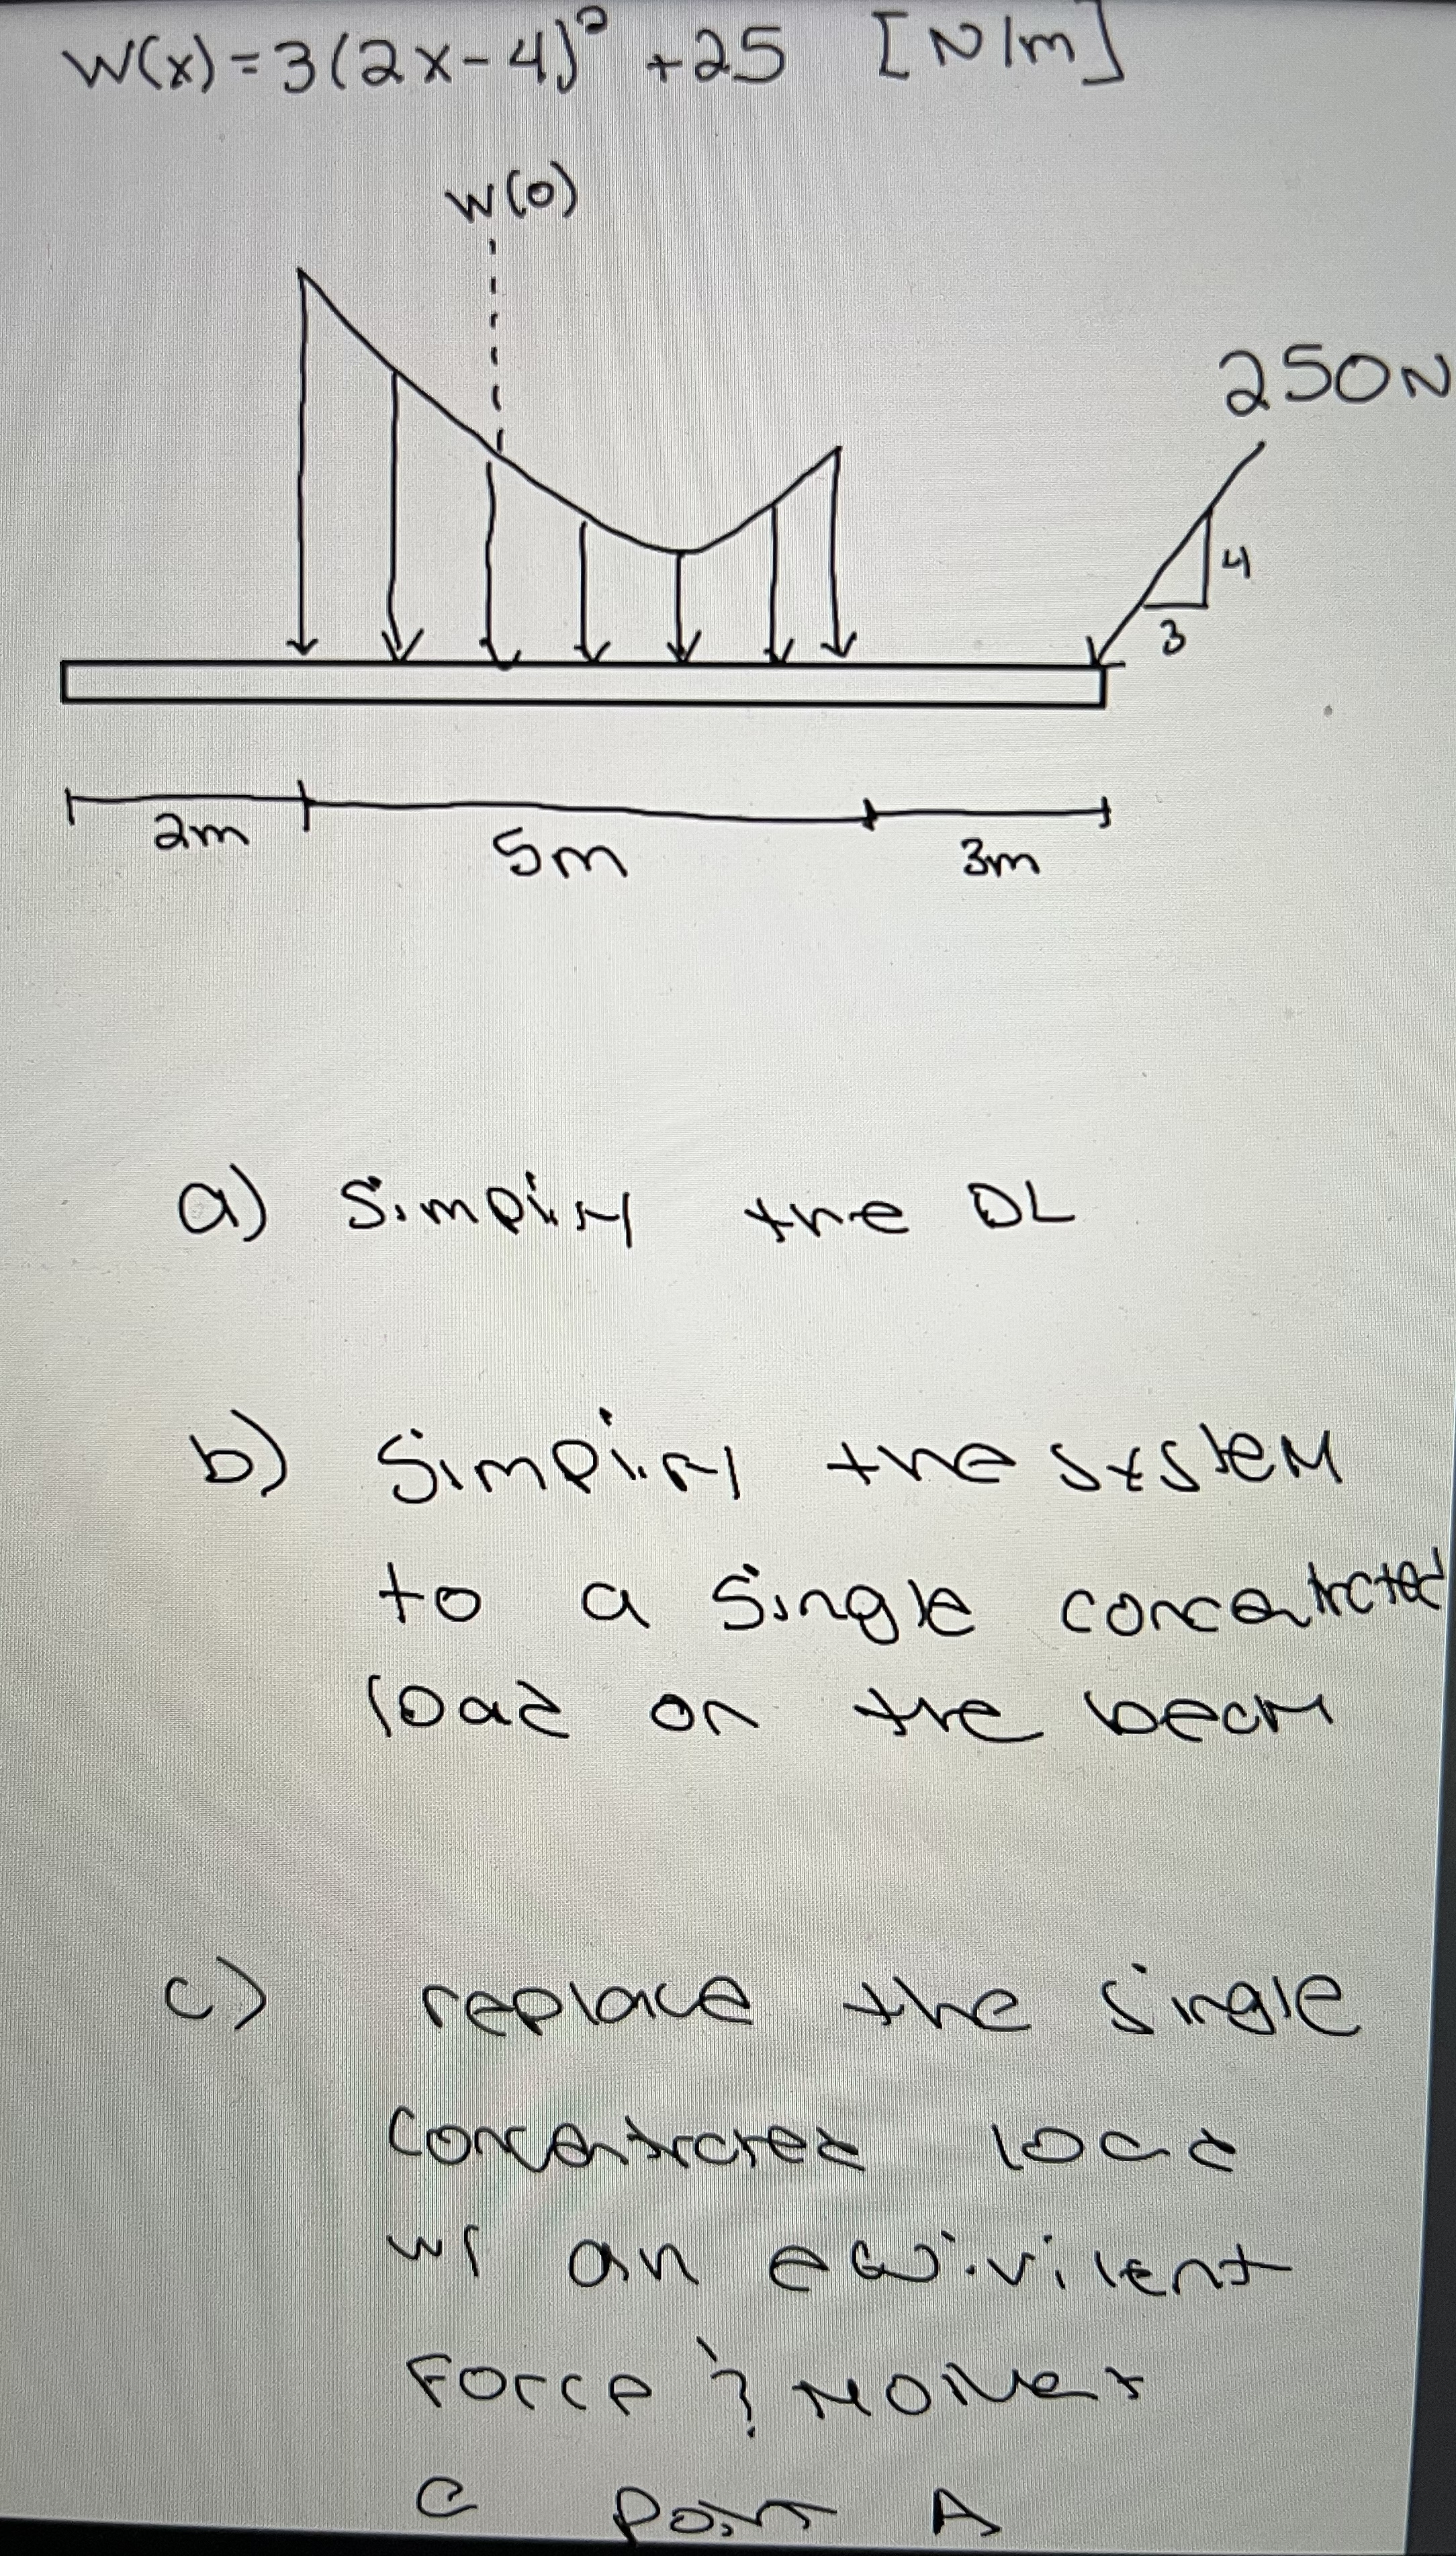 W(x)=3(2x-4)² +25 [N/m]
W(0)
250N
4
3
2m
5m
3m
a) Simplify the DL
b) Simplify the system
to a single concentrated
load on the beam
c) replace the single
concentrated load
w/ an equivilent
Force & Moment
@ Point A